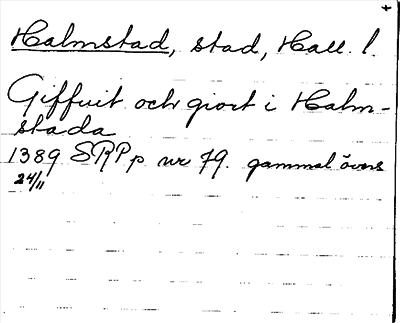 Halmstad, stad, Hall. l.
Giffuit och giort i Halm-
stada
1389 SRPp nr 79. gammal övers
24/11